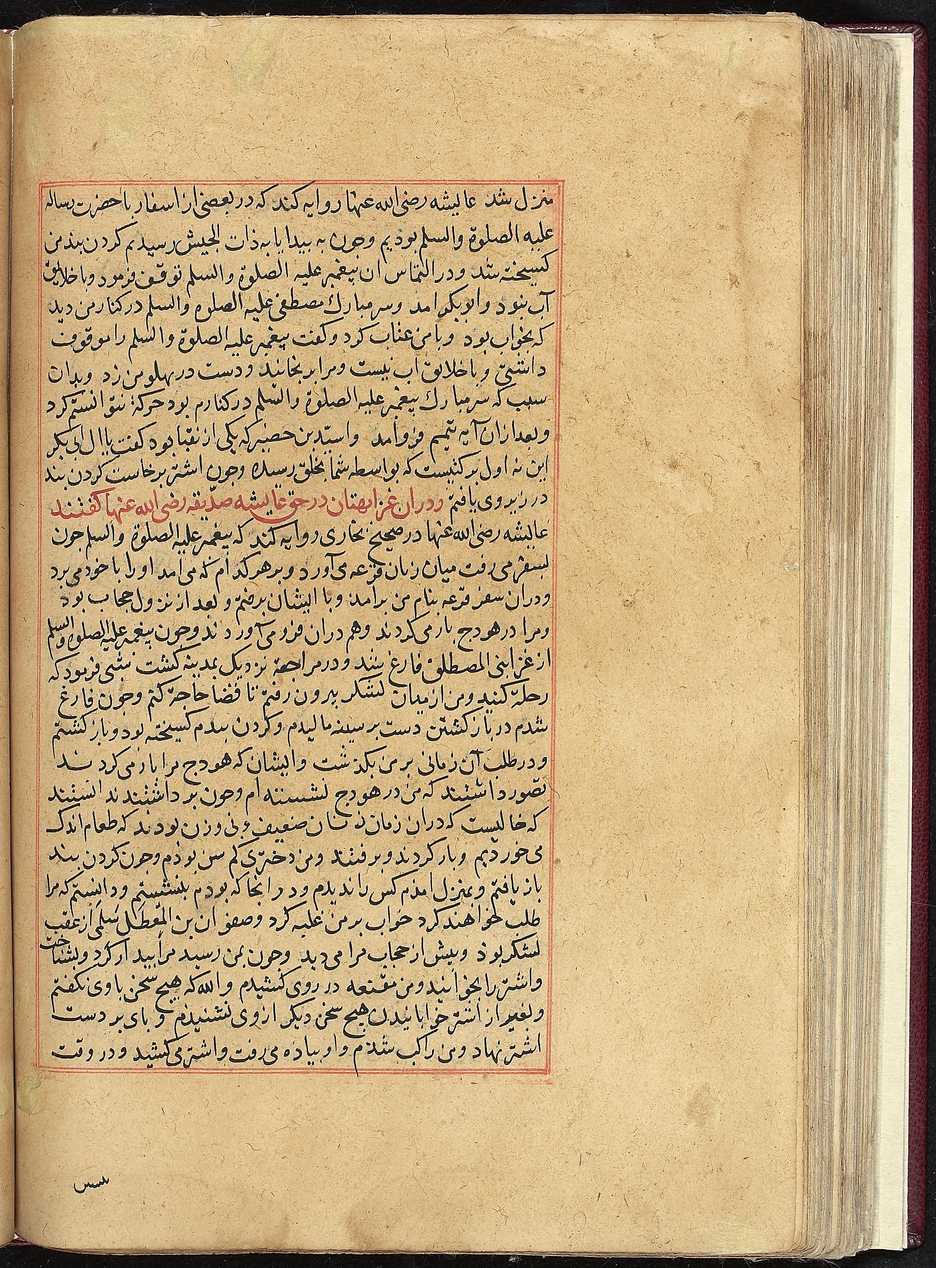 منزل شد عایشه رضی الله عنها روایه کند که در بعضی از اسفار با حضرت رساله
علیه الصلوة والسلم بودیم وچون به بیدا یا به ذات الجیش رسیدیم کردن بند من
کسیخته شد ودر التماس ان پیغمبر علیه الصلوة والسلم توقف فرمود وبا خلایق
آب نبود وابوبکر امد وسر مبارك مصطفی علیه الصلوه والسلم در کنار من دید
که بخواب بود وبا من عتاب کرد وکفت پیغمبر علیه الصلوة والسلم را موقوف
داشتی وبا خلایق اب نیست ومرا برنجانید ودست در پهلو من زد وبدان
سبب که سر مبارك پیغمبر علیه الصلوة والسلم در کنارم بود حرکة نتوانستم کرد
وبعد ازان آیه تیمم فرو امد واسید بن حضیر که یکی از نقبا بود کفت یاال ابی بکر
این نه اول برکتیست که بواسطه شما بخلق رسیده وچون اشتر برخاست کردن بند
در زیر وی یافتم ودران غزا بهتان در حق عایشه صدیقه رضی الله عنها کفتند
عایشه رضی الله عنها در صحیح بخاری روایه کند که پیغمبر علیه الصلوة والسلم چون
بسفر می رفت میان زنان قرعه می آورد وبر هر کدام که می امد اورا با خود می برد
ودران سفر قرعه بنام من برامد وبا ایشان برفتم وبعد از نزول حجاب بود
ومرا در هودج بار می کردند وهم دران فرو می آوردند وچون پیغمبر علیه الصلوه والسلم
از غزا بنی المصطلق فارغ شد ودر مراجعه نزدیک بمدینه کشت شبی فرمود که
رحله کنید ومن از میان لشکر بیرون رفتم تا قضا حاجة کنم وچون فارغ
شدم در باز کشتن دست بر سینه مالیدم وکردن بندم کسیخته بود وباز کشتم
ودر طلب آن زمانی بر من بکذشت وایشان که هودج مرا بار می کردند
تصور داشتند که من در هودج نشسته ام وچون برداشتند ندانستند
که خالیست که دران زمان زنان ضعیف وبی وزن بودند که طعام اندک
می خوردیم وبار کردند وبرفتند ومن دختری کم سن بودم وچون کردن بند
باز یافتم وبمنزل امدم کس را ندیدم ودر انجا که بودم بنشستم ودانستم که مرا
طلب خواهند کرد خواب بر من غلبه کرد وصفوان بن المعطل سلمی از عقب
لشکر بود وپیش از حجاب مرا می دید وچون بمن رسید مرا بیدار کرد وبشناخت
واشتر را بخوابانید ومن مقنعه در روی کشیدم والله که هیچ سخن با وی نکفتم
وبغیر از اشتر خوابانیدن هیچ سخن دیکر از وی نشنیدم وپای بر دست
اشتر نهاد ومن راکب شدم واو پیاده می رفت واشتر می کشید ودر وقت